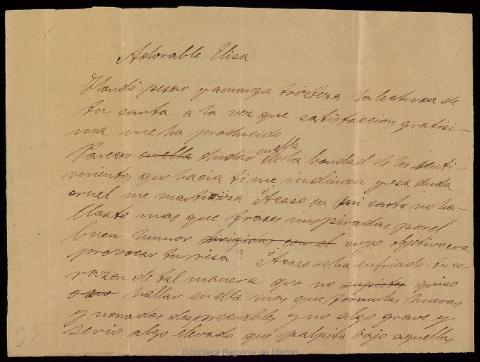 Adorable Elisa
Hondo pesar y amarga tristeza la lectura de
tu carta a la vez que satisfaccion gratisi-
ma me ha producido
Pareces en ella dudar de la bondad de los senti-
mientos que hacia ti me inclinan y esa duda
cruel me martiriza ¿Acaso en mi carta no ha-
llaste mas que frases inspiradas por el
buen humor dirigidas con el cuyo objeto era
provocar tu risa? ¿Acaso se ha enfriado tu co-
razon de tal manera que no quiso
hallar en ella mas que formulas huecas
y nonadas despreciables y no algo grave y
serio algo elevado que palpita bajo aquellas
Biblioteca Regional de Madrid